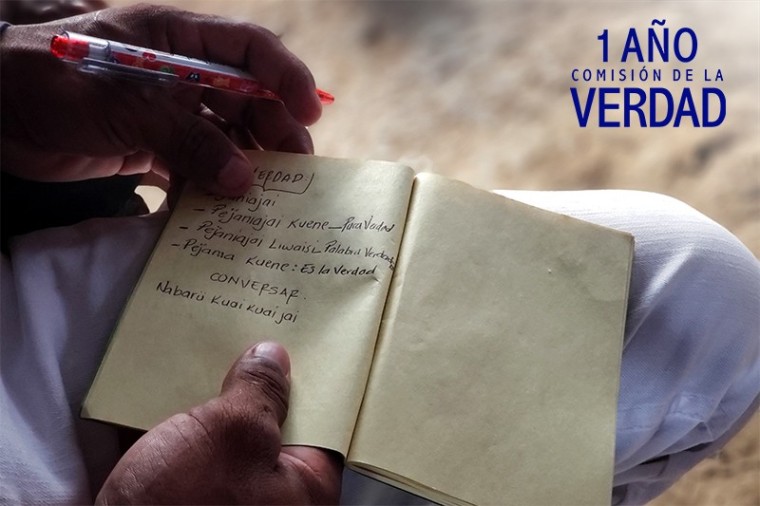 1 AÑO
COMISIÓN DE LA
VERDAD
VERDAD
- Pejaniajai Kuene_Para Verdad
- Pejaniajai Liwaisi_Palabra
- Pejama Kuene: Es la Verdad
CONVERSAR.
Nabarü Kuai Kuai jai